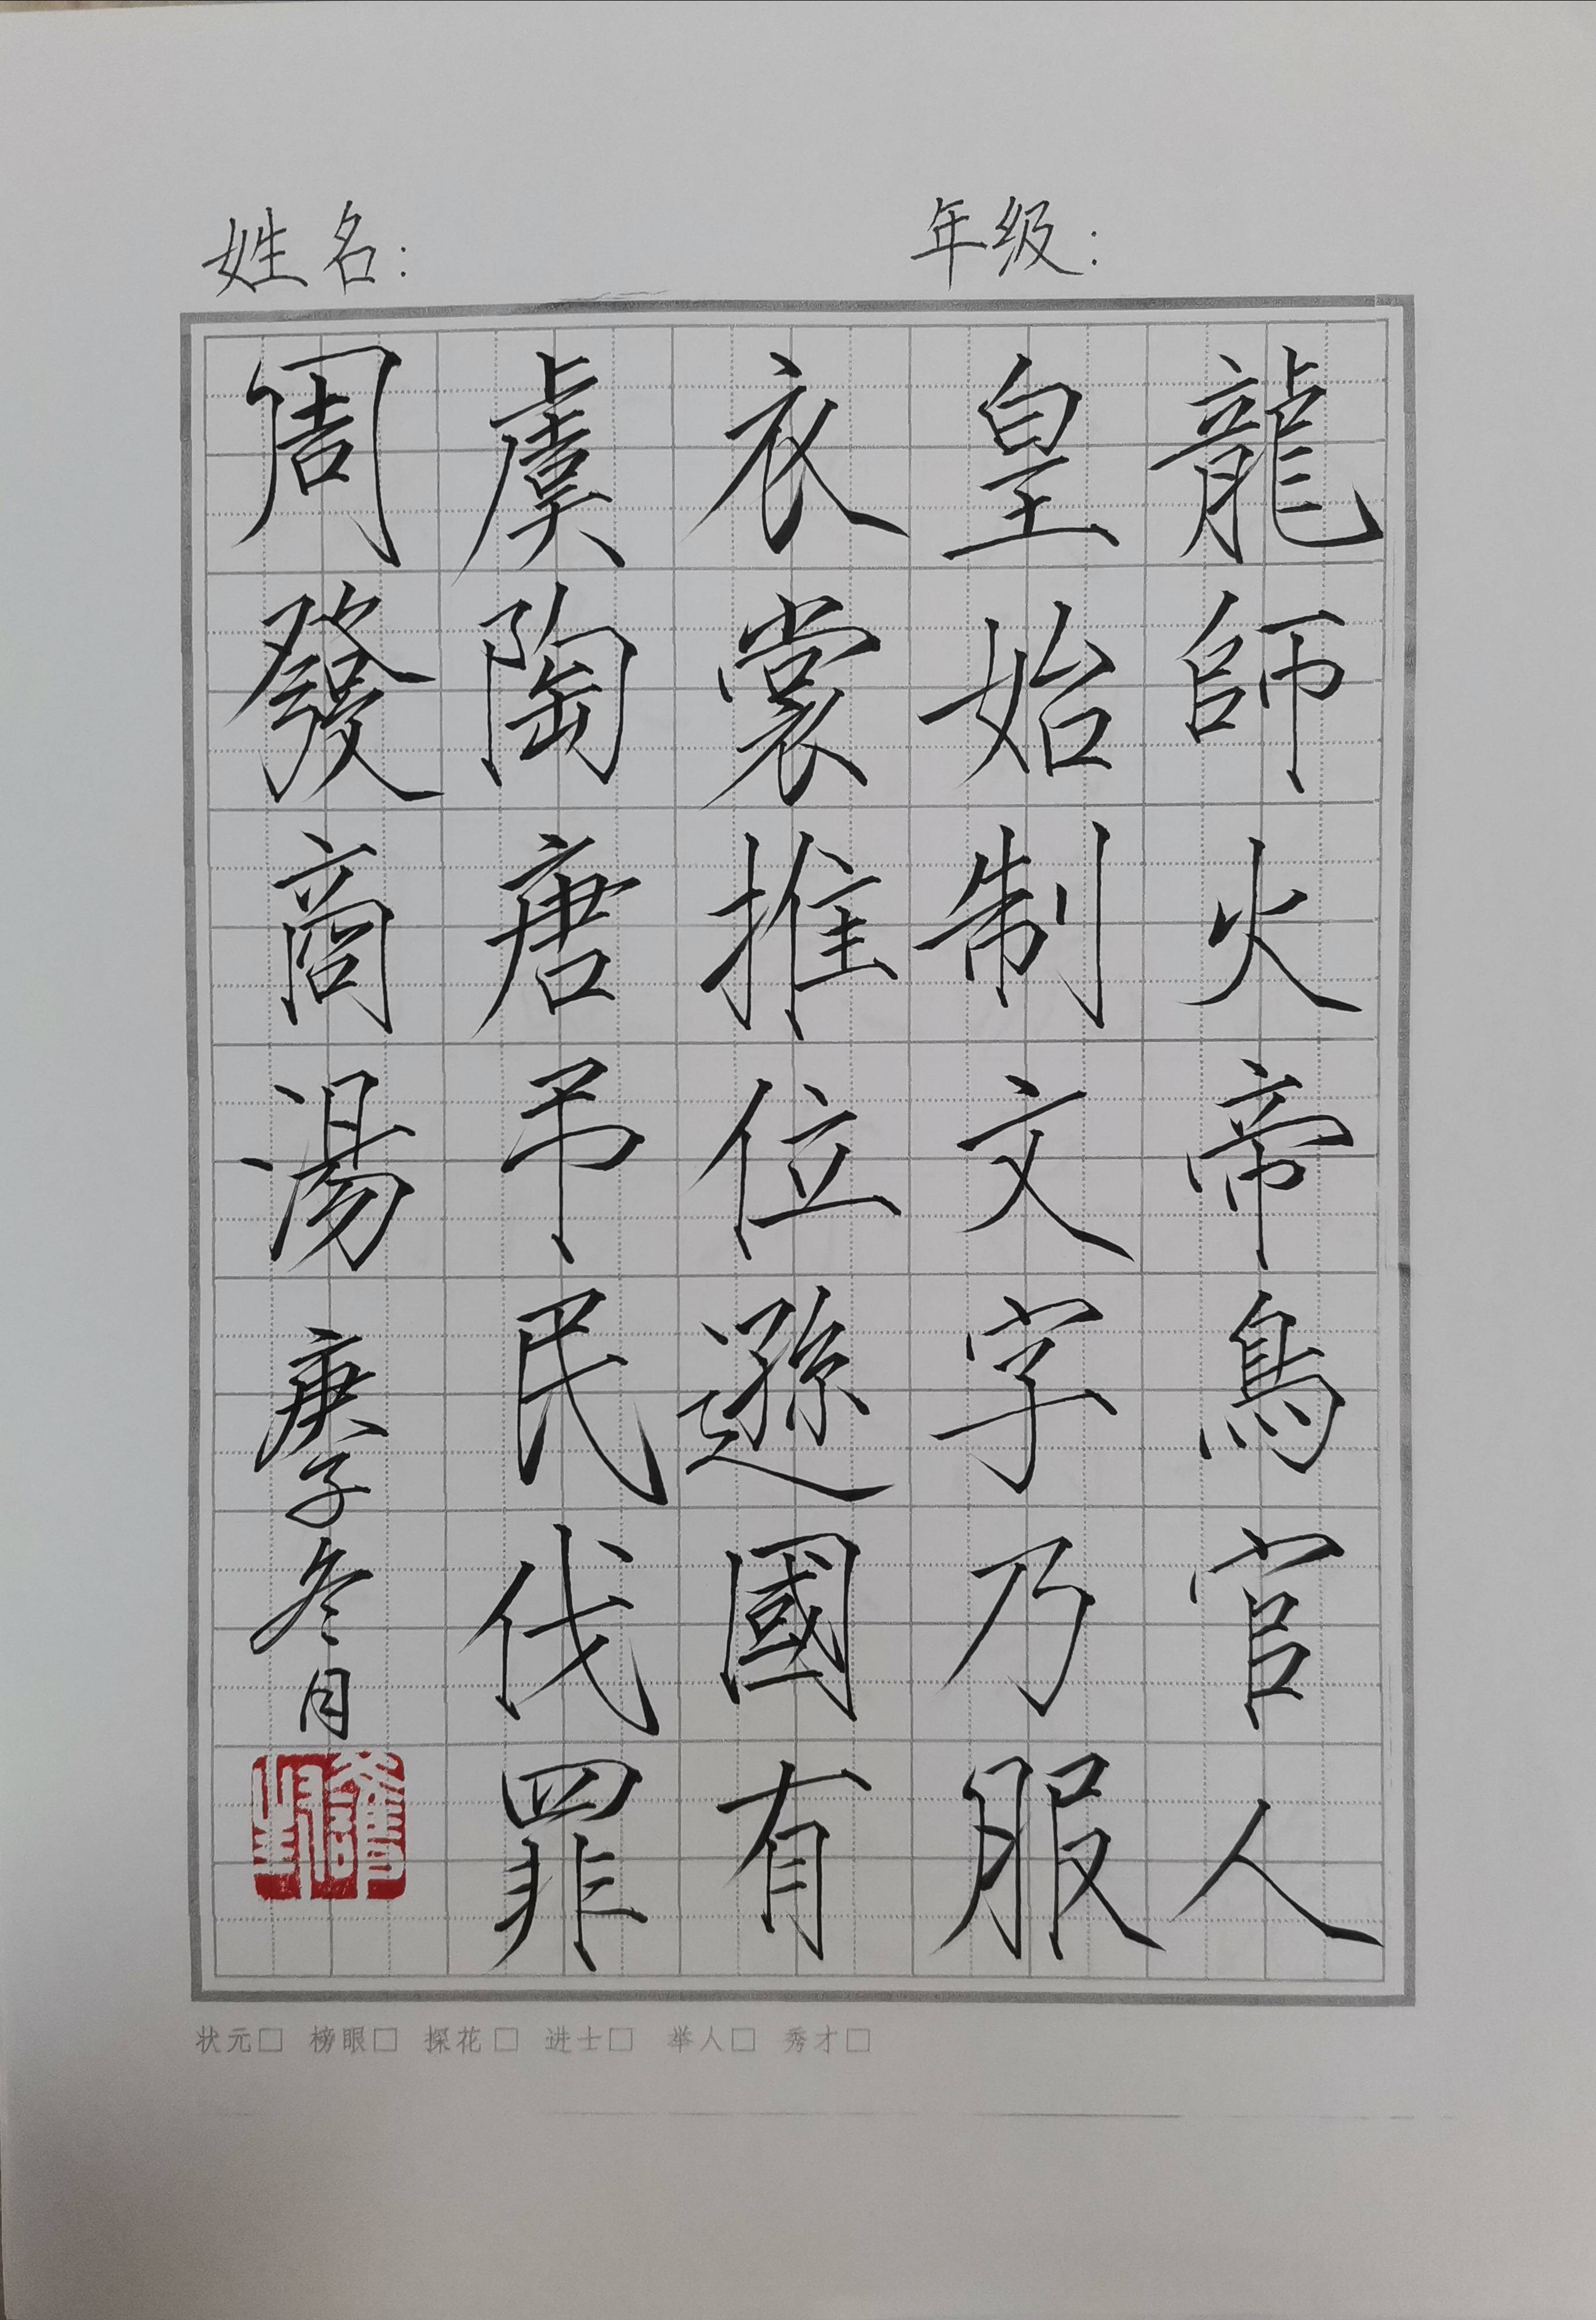 姓名：
年级：
龍師火帝鳥官人
皇始制文字乃服
衣裳推位遜國有
虞陶唐吊民伐罪
周發商湯
庚子冬月
状元□ 榜眼□ 探花□ 进士□ 举人□ 秀才□